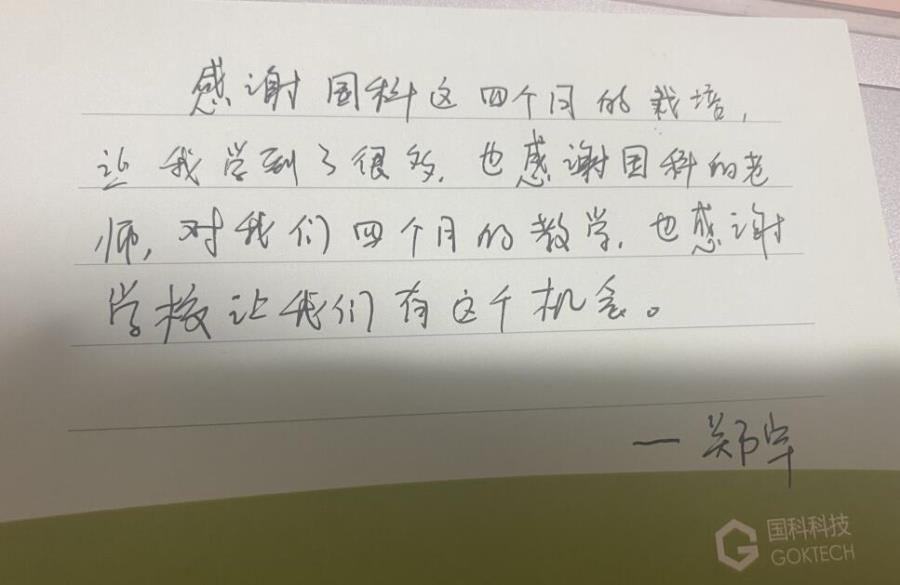 感谢国科这四个月的栽培,
让我学到了很多,也感谢国科的老
师,对我们四个月的教学,也感谢
学校让我们有这个机会。
一郑
国科科技
GOKTECH